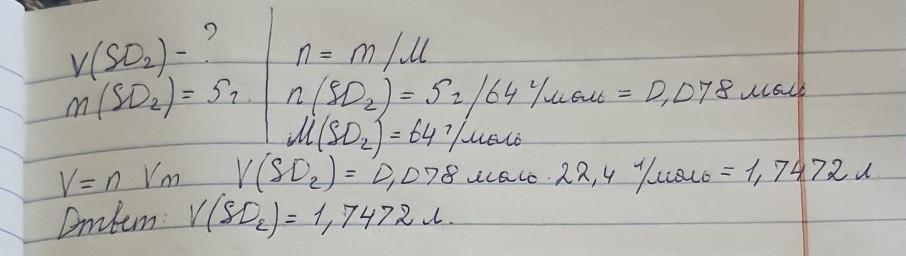 V(SO₂) - ? n = m/M
m(SO₂) = 5г. n(SO₂) = 5г/64 г/моль = 0,078 моль
M(SO₂) = 64 г/моль
V = n Vm V(SO₂) = 0,078 моль · 22,4 л/моль = 1,7472 л
Ответ: V(SO₂) = 1,7472 л.